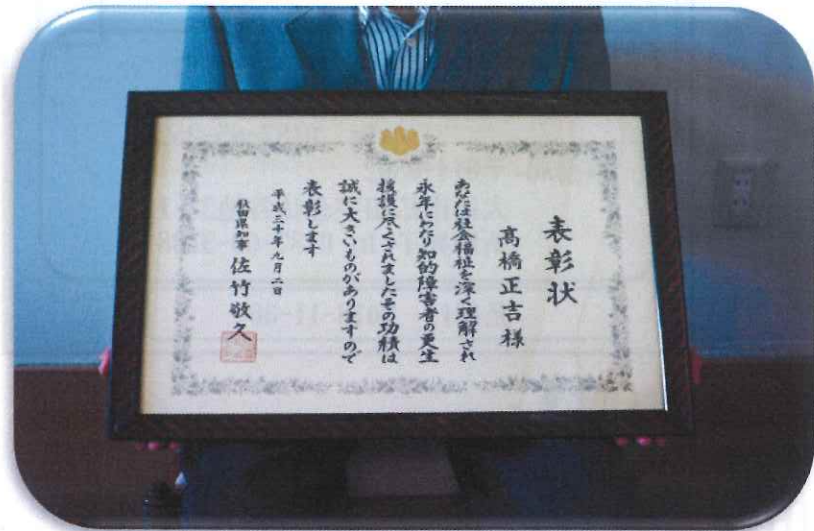 表彰状
高橋正吉様
あなたは社会福祉を深く理解され
永年にわたり知的障害者の更生
援護に尽くされましたその功績は
誠に大きいものがありますので
表彰します
平成三十年九月二日
秋田県知事 佐竹敬久